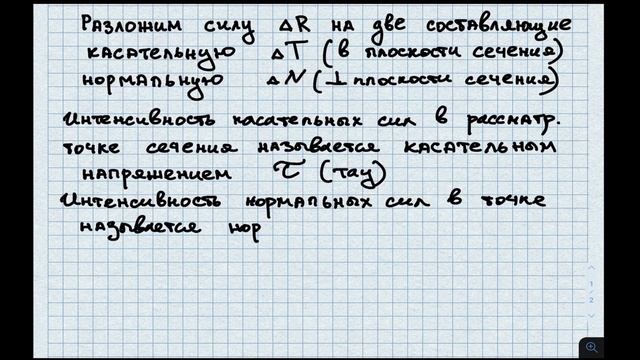 Разложим силу ΔR на две составляющие
касательную ΔT (в плоскости сечения)
нормальную ΔN (⊥ плоскости сечения)
Интенсивность касательных сил в рассматр.
точке сечения называется касательным
напряжением τ (тау)
Интенсивность нормальных сил в точке
называется нор
1
2